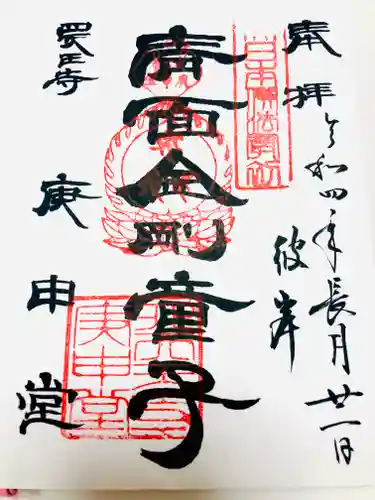 奉拝
令和四年長月廿一日
彼岸
青面金剛童子
四天王寺
庚申堂
日本佛法最初
庚申堂